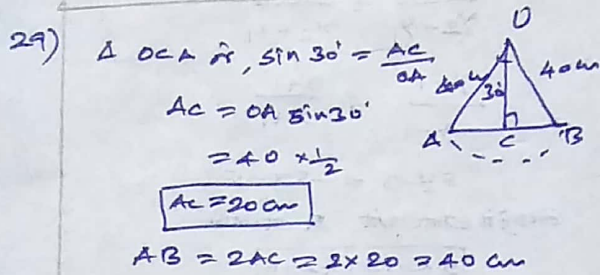 29) Δ OCA ல், sin 30° = AC/OA
AC = OA sin 30°
= 40 × 1/2
AC = 20 cm
AB = 2AC = 2 × 20 = 40 cm
O
40 cm
40 cm
30°
A
C
B